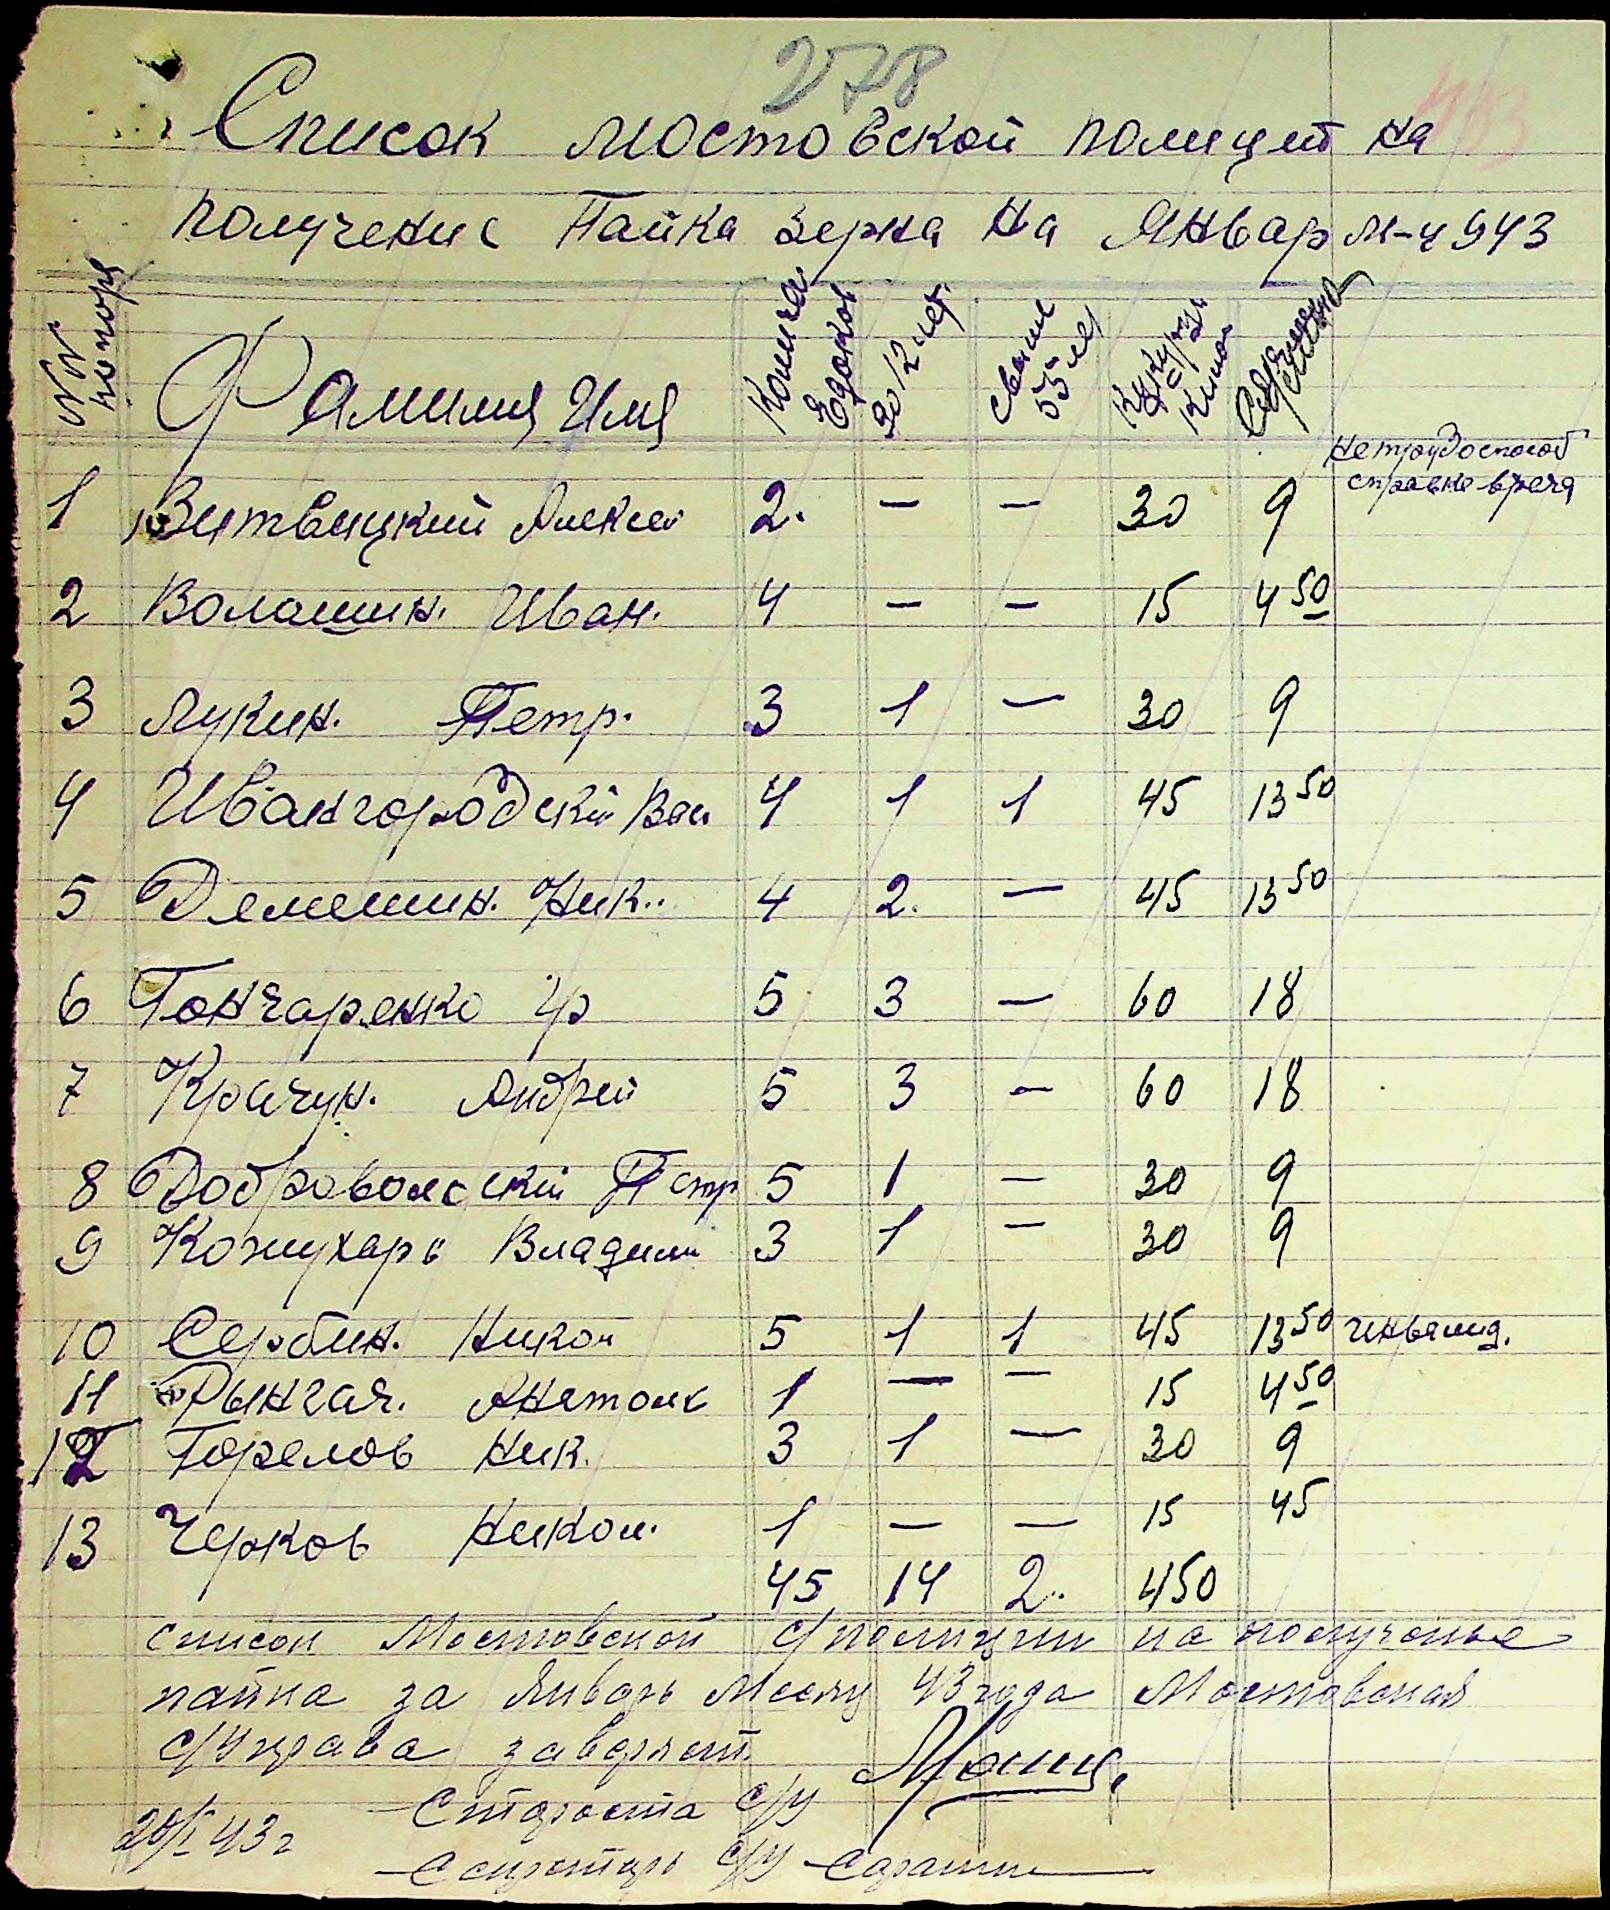 278
Список мостовской полицеи на
получение Пайка зерна на Январ м-ц 943
NN по поря Фамилия Имя Количе Едоков до 12 лет свыше 55 лет Кукурузы Кило
нетрудоспособ
справке врача
1 Витвицкий Алексей 2. — — 30 9
2 Волошин. Иван. 4 — — 15 4 50
3 Лукин. Петр. 3 1 — 30 9
4 Ивангородскй Вас 4 1 1 45 13 50
5 Демешин. Ник.. 4 2. — 45 13 50
6 Гончаренко Гр 5 3 — 60 18
7 Крачун. Андрей 5 3 — 60 18
8 Добровольскй Петр 5 1 — 30 9
9 Кожухарь Владими 3 1 — 30 9
10 Сербин. Никол 5 1 1 45 13 50 инвалид.
11 Рынгач. Анатоли 1 — — 15 4 50
12 Горелов Ник. 3 1 — 30 9
13 Черков Никол. 1 — — 15 45
45 14 2. 450
список Мостовской с/полиции на получонье
пайка за Январь Месяц 43 года Мостовская
с/управа заверяет.
Староста с/у
20/I 43 г
Секретарь с/у